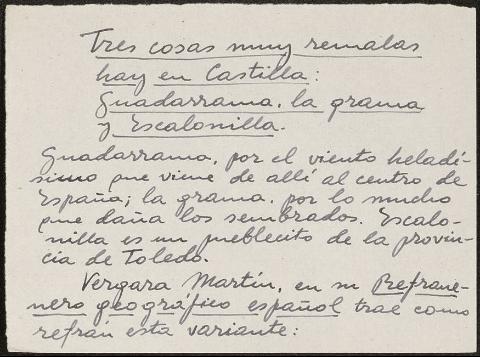 Tres cosas muy remalas
hay en Castilla:
Guadarrama, la grama
y Escalonilla.
Guadarrama, por el viento heladí-
simo que viene de allí al centro de
España; la grama, por lo mucho
que daña los sembrados. Escalo-
nilla es un pueblecito de la provin-
cia de Toledo.
Vergara Martín, en su Refrane-
nero geográfico español trae como
refrán esta variante: